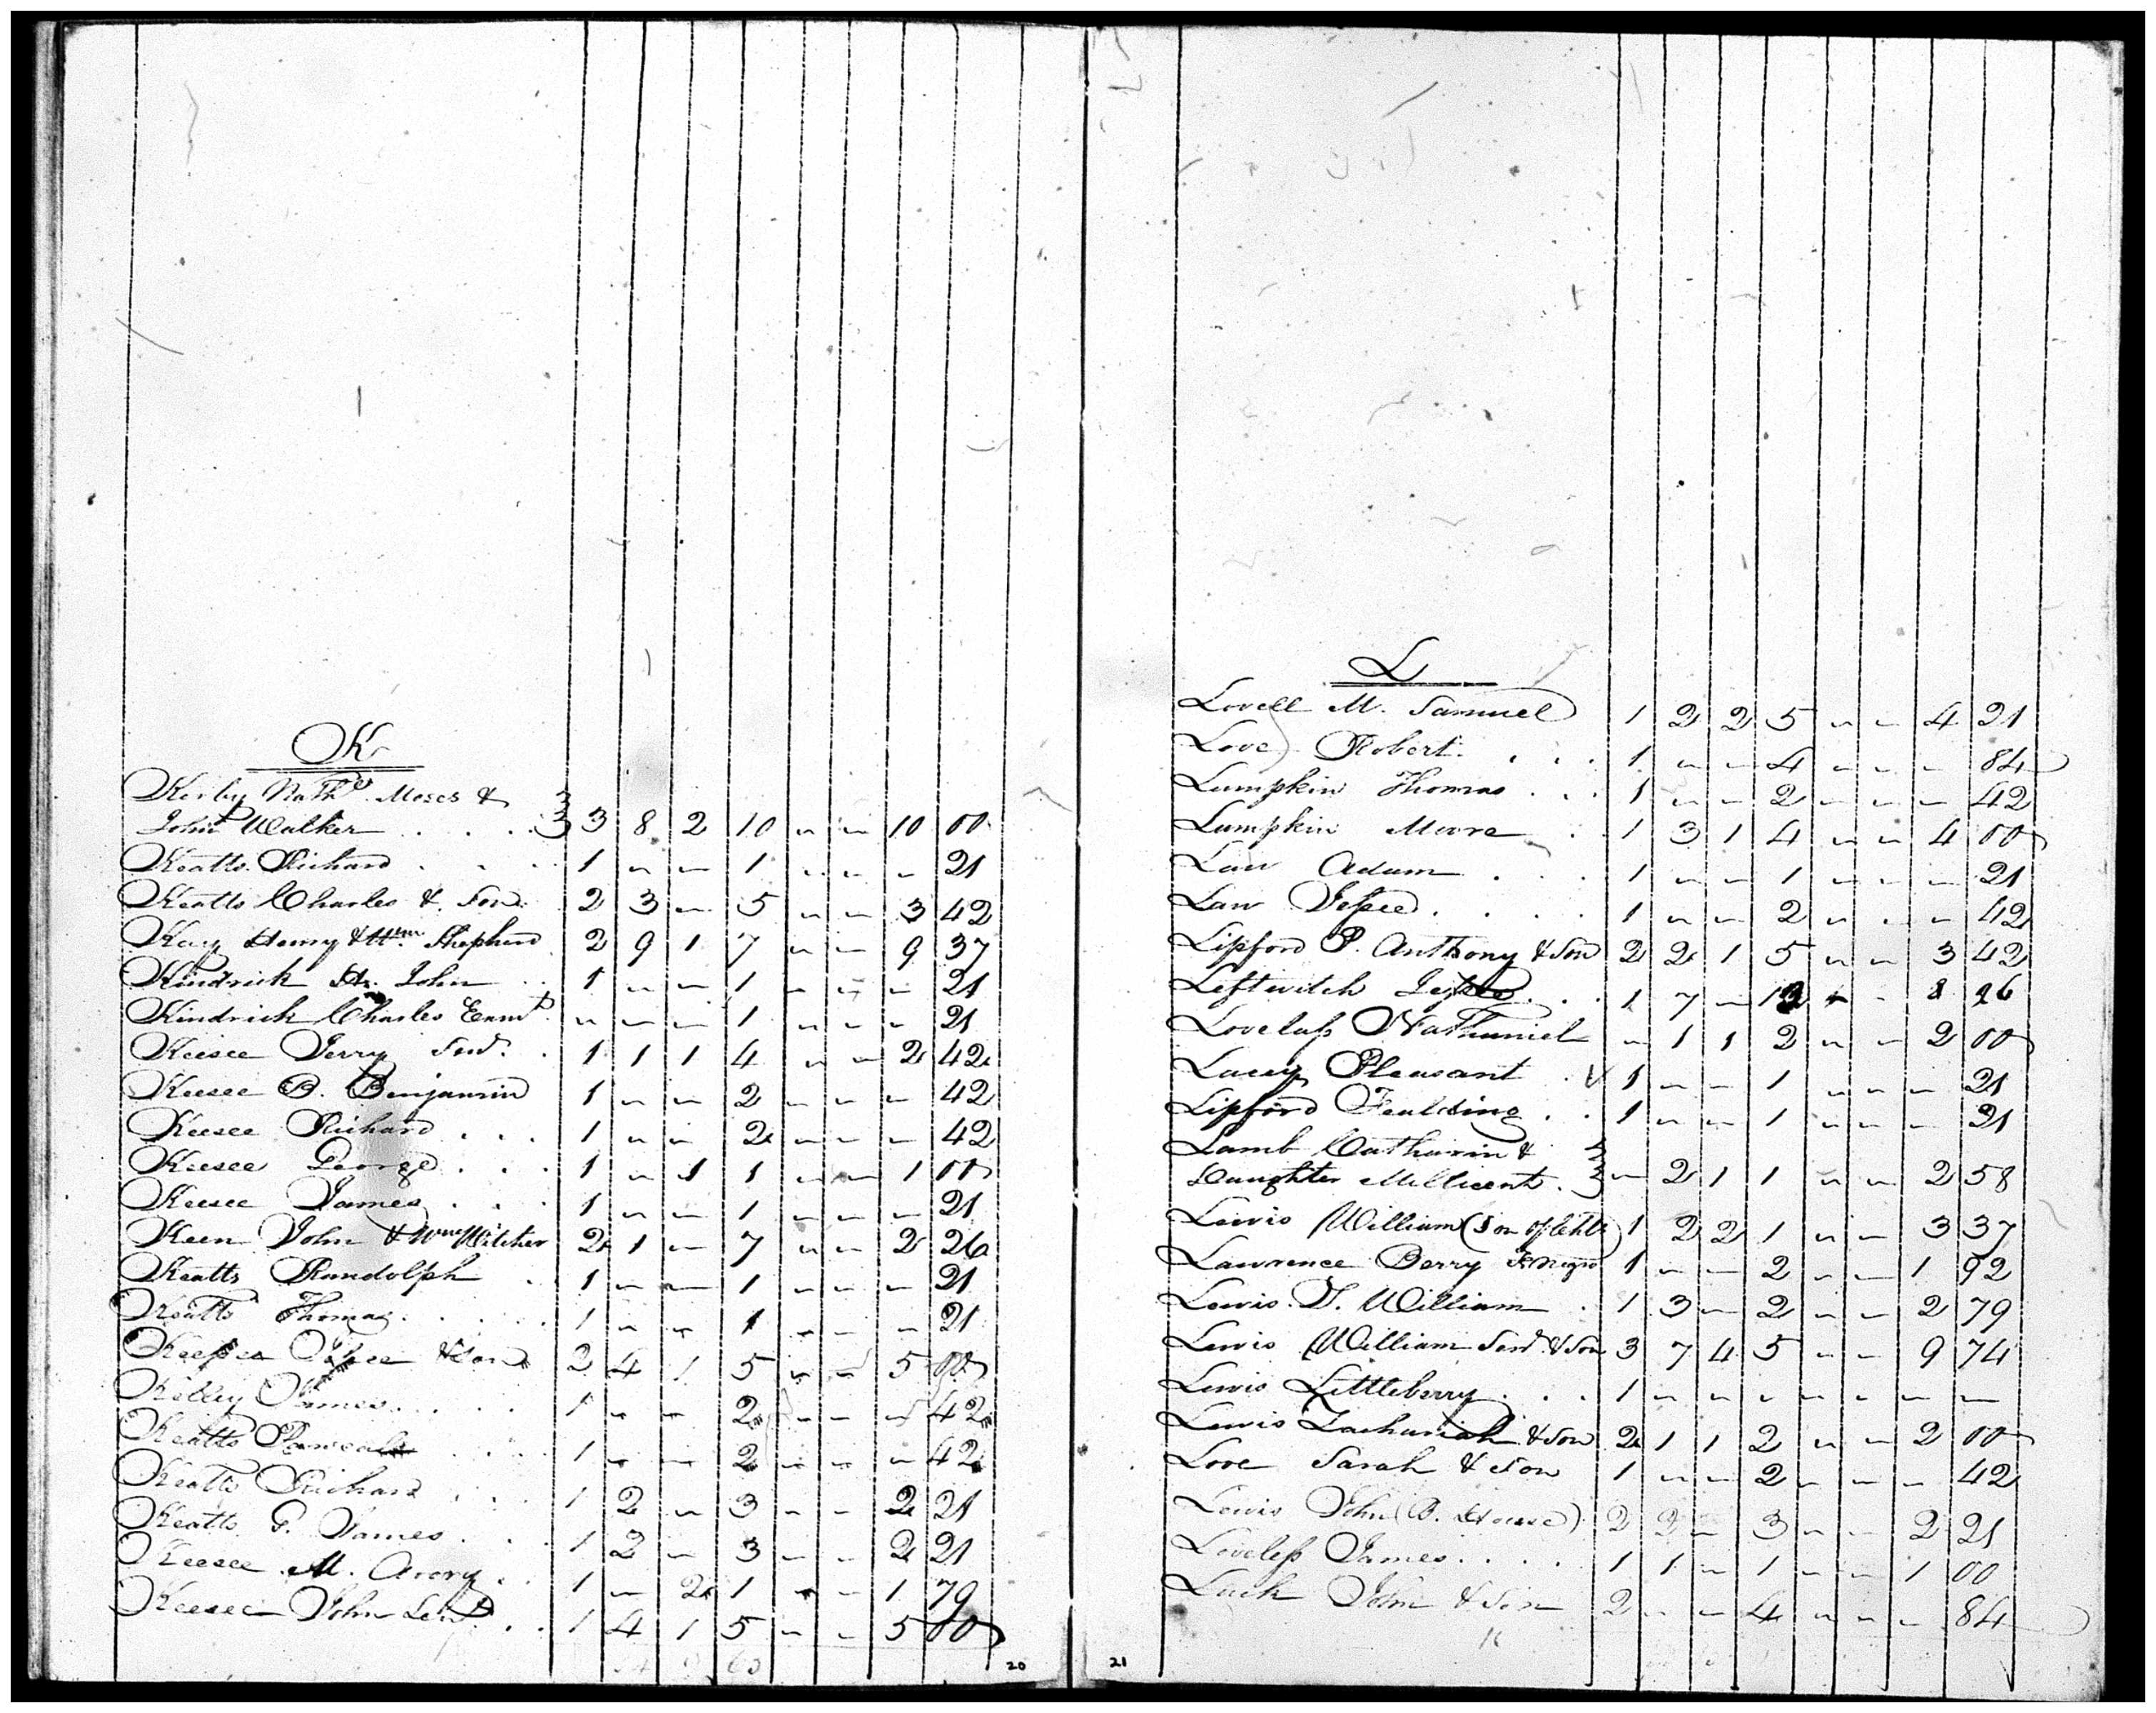 K
Kirby Nathl. Moses &
John Walker . . . 3 8 2 10 " " 10 00
Keatts Richard . . . 1 " " 1 " " " 21
Keatts Charles & Son 2 3 " 5 " " 3 42
Kay Henry & Wm Shepherd 2 9 1 7 " " 9 37
Kindrick John . . 1 " " 1 " " " 21
Kindrick Charles Exmt. " " " 1 " " " 21
Keesee Jerry Senr. . 1 1 1 4 " " 2 42
Keesee B. Benjamin 1 " " 2 " " " 42
Keesee Richard . . . 1 " " 2 " " " 42
Keesee George . . . 1 " 1 1 " " 1 00
Keesee James . . . 1 " " 1 " " " 21
Keen John & Wm Witcher 2 1 " 7 " " 2 26
Keatts Randolph . 1 " " 1 " " " 21
Keatts Thomas . . . . 1 " " 1 " " " 21
Keesee & Son 2 4 1 5 " " 5 00
Kelley James . . . . 1 " " 2 " " " 42
Keatts . . . 1 " " 2 " " " 42
Keatts Richard . . . 1 2 " 3 " " 2 21
Keatts G. James . . . 1 2 " 3 " " 2 21
Keesee M. Avory . . 1 " 2 1 " " 1 79
Keesee John Senr. . . 1 4 1 5 " " 5 00
20
L
Lovell M. Samuel 1 2 2 5 " " 4 21
Love Robert . . . . 1 " " 4 " " " 84
Lumpkin Thomas . . . 1 " " 2 " " " 42
Lumpkin Moore . 1 3 1 4 " " 4 00
Law Adam . . . 1 " " 1 " " " 21
Law Jesse . . . . 1 " " 2 " " " 42
Lipford P. Anthony & Son 2 2 1 5 " " 3 42
Leftwitch . . . 1 7 " " " 8 96
Lovelass Nathaniel " 1 1 2 " " 2 00
Lacey Pleasant . V 1 " " 1 " " " 21
Lipford Faulding . . 1 " " 1 " " " 21
Lamb Catharin &
Daughter Millicent . " 2 1 1 " " 2 58
Lewis William (Son of Chls) 1 2 2 1 " " 3 37
Lawrence Berry F. Negro 1 " " 2 " " 1 92
Lewis T. William . 1 3 " 2 " " 2 79
Lewis William Senr. & Son 3 7 4 5 " " 9 74
Lewis Littleberry . . . 1 " " " " " " "
Lewis Zachariah & Son 2 1 1 2 " " 2 00
Love Sarah & Son 1 " " 2 " " " 42
Lewis John (B. House) 2 2 " 3 " " 2 21
Loveless James . . . . 1 1 " 1 " " 1 00
Luck John & Son 2 " " 4 " " " 84
21